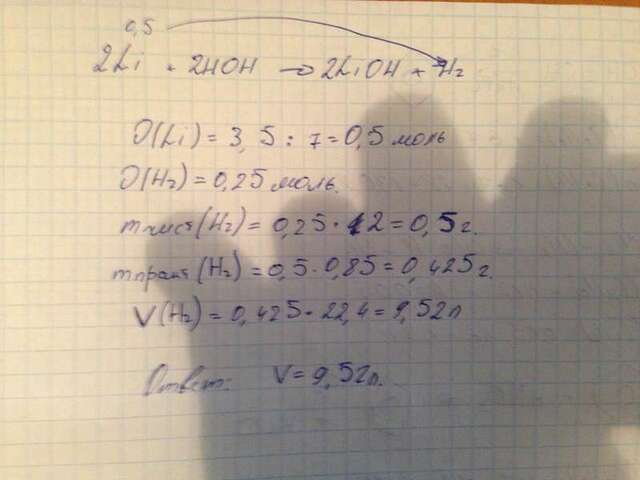 0,5
2Li + 2HOH → 2LiOH + H₂
υ(Li) = 3,5 : 7 = 0,5 моль
υ(H₂) = 0,25 моль.
m чист(H₂) = 0,25 · 2 = 0,5 г.
m практ(H₂) = 0,5 · 0,85 = 0,425 г.
V(H₂) = 0,425 · 22,4 = 9,52 л
Ответ: V = 9,52 л.